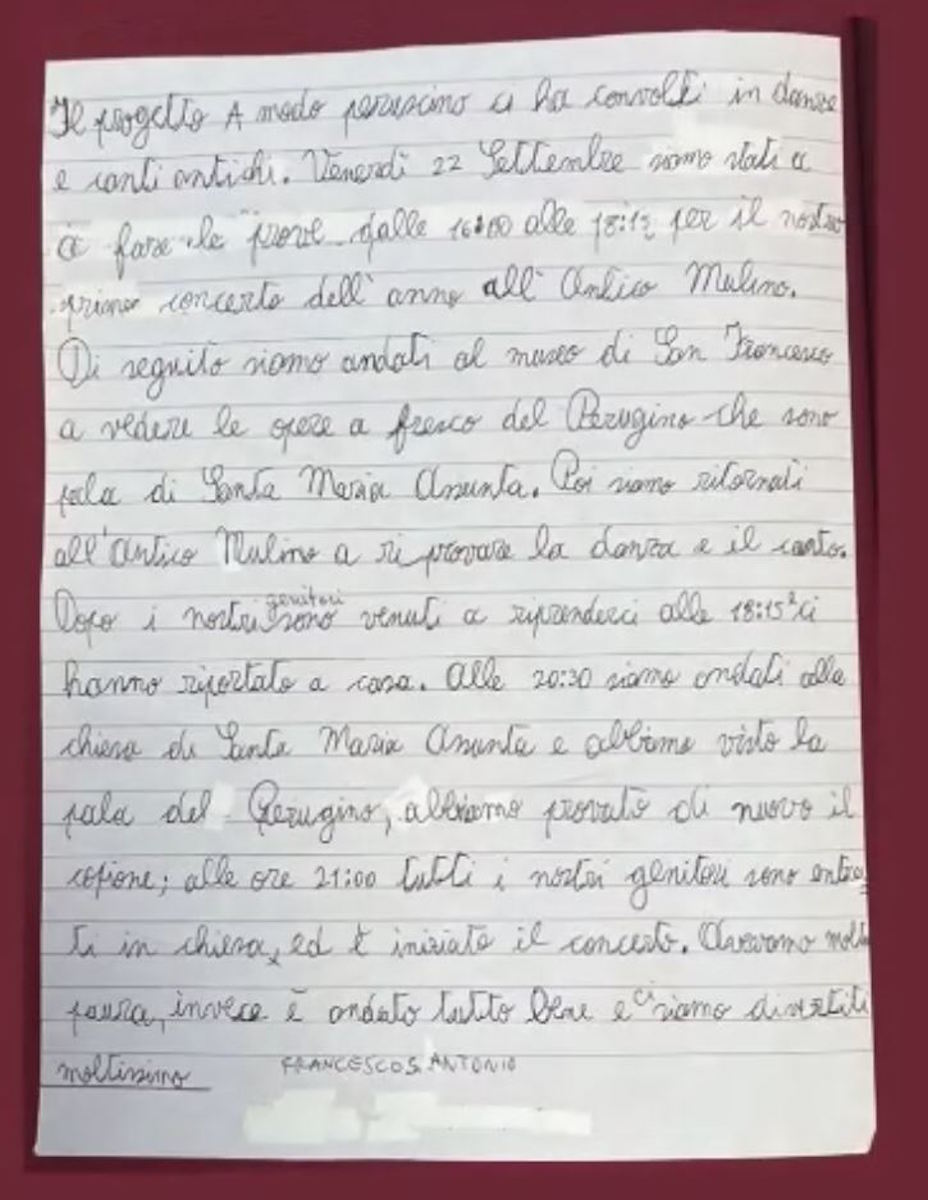 Il progetto A modo peruscino ci ha convolti in danze
e canti antichi. Venerdì 22 Settembre siamo stati a
a fare le prove dalle 16:00 alle per il nostro
primo concerto dell'anno all'Antico Mulino.
Di seguito siamo andati al museo di San Francesco
a vedere le opere a fresco del Perugino che sono
pala di Santa Maria Assunta. Poi siamo ritornati
all'Antico Mulino a ri provare la danza e il canto.
Dopo i nostri genitori sono venuti a riprenderci alle 18:15 ci
hanno riportato a casa. Alle 20:30 siamo andati alla
chiesa di Santa Maria Assunta e abbiamo visto la
pala del Perugino, abbiamo provato di nuovo il
copione; alle ore 21:00 tutti i nostri genitori sono entra
ti in chiesa, ed è iniziato il concerto. Avevamo molta
paura, invece è andato tutto bene e ci siamo divertiti
moltissimo FRANCESCO S. ANTONIO